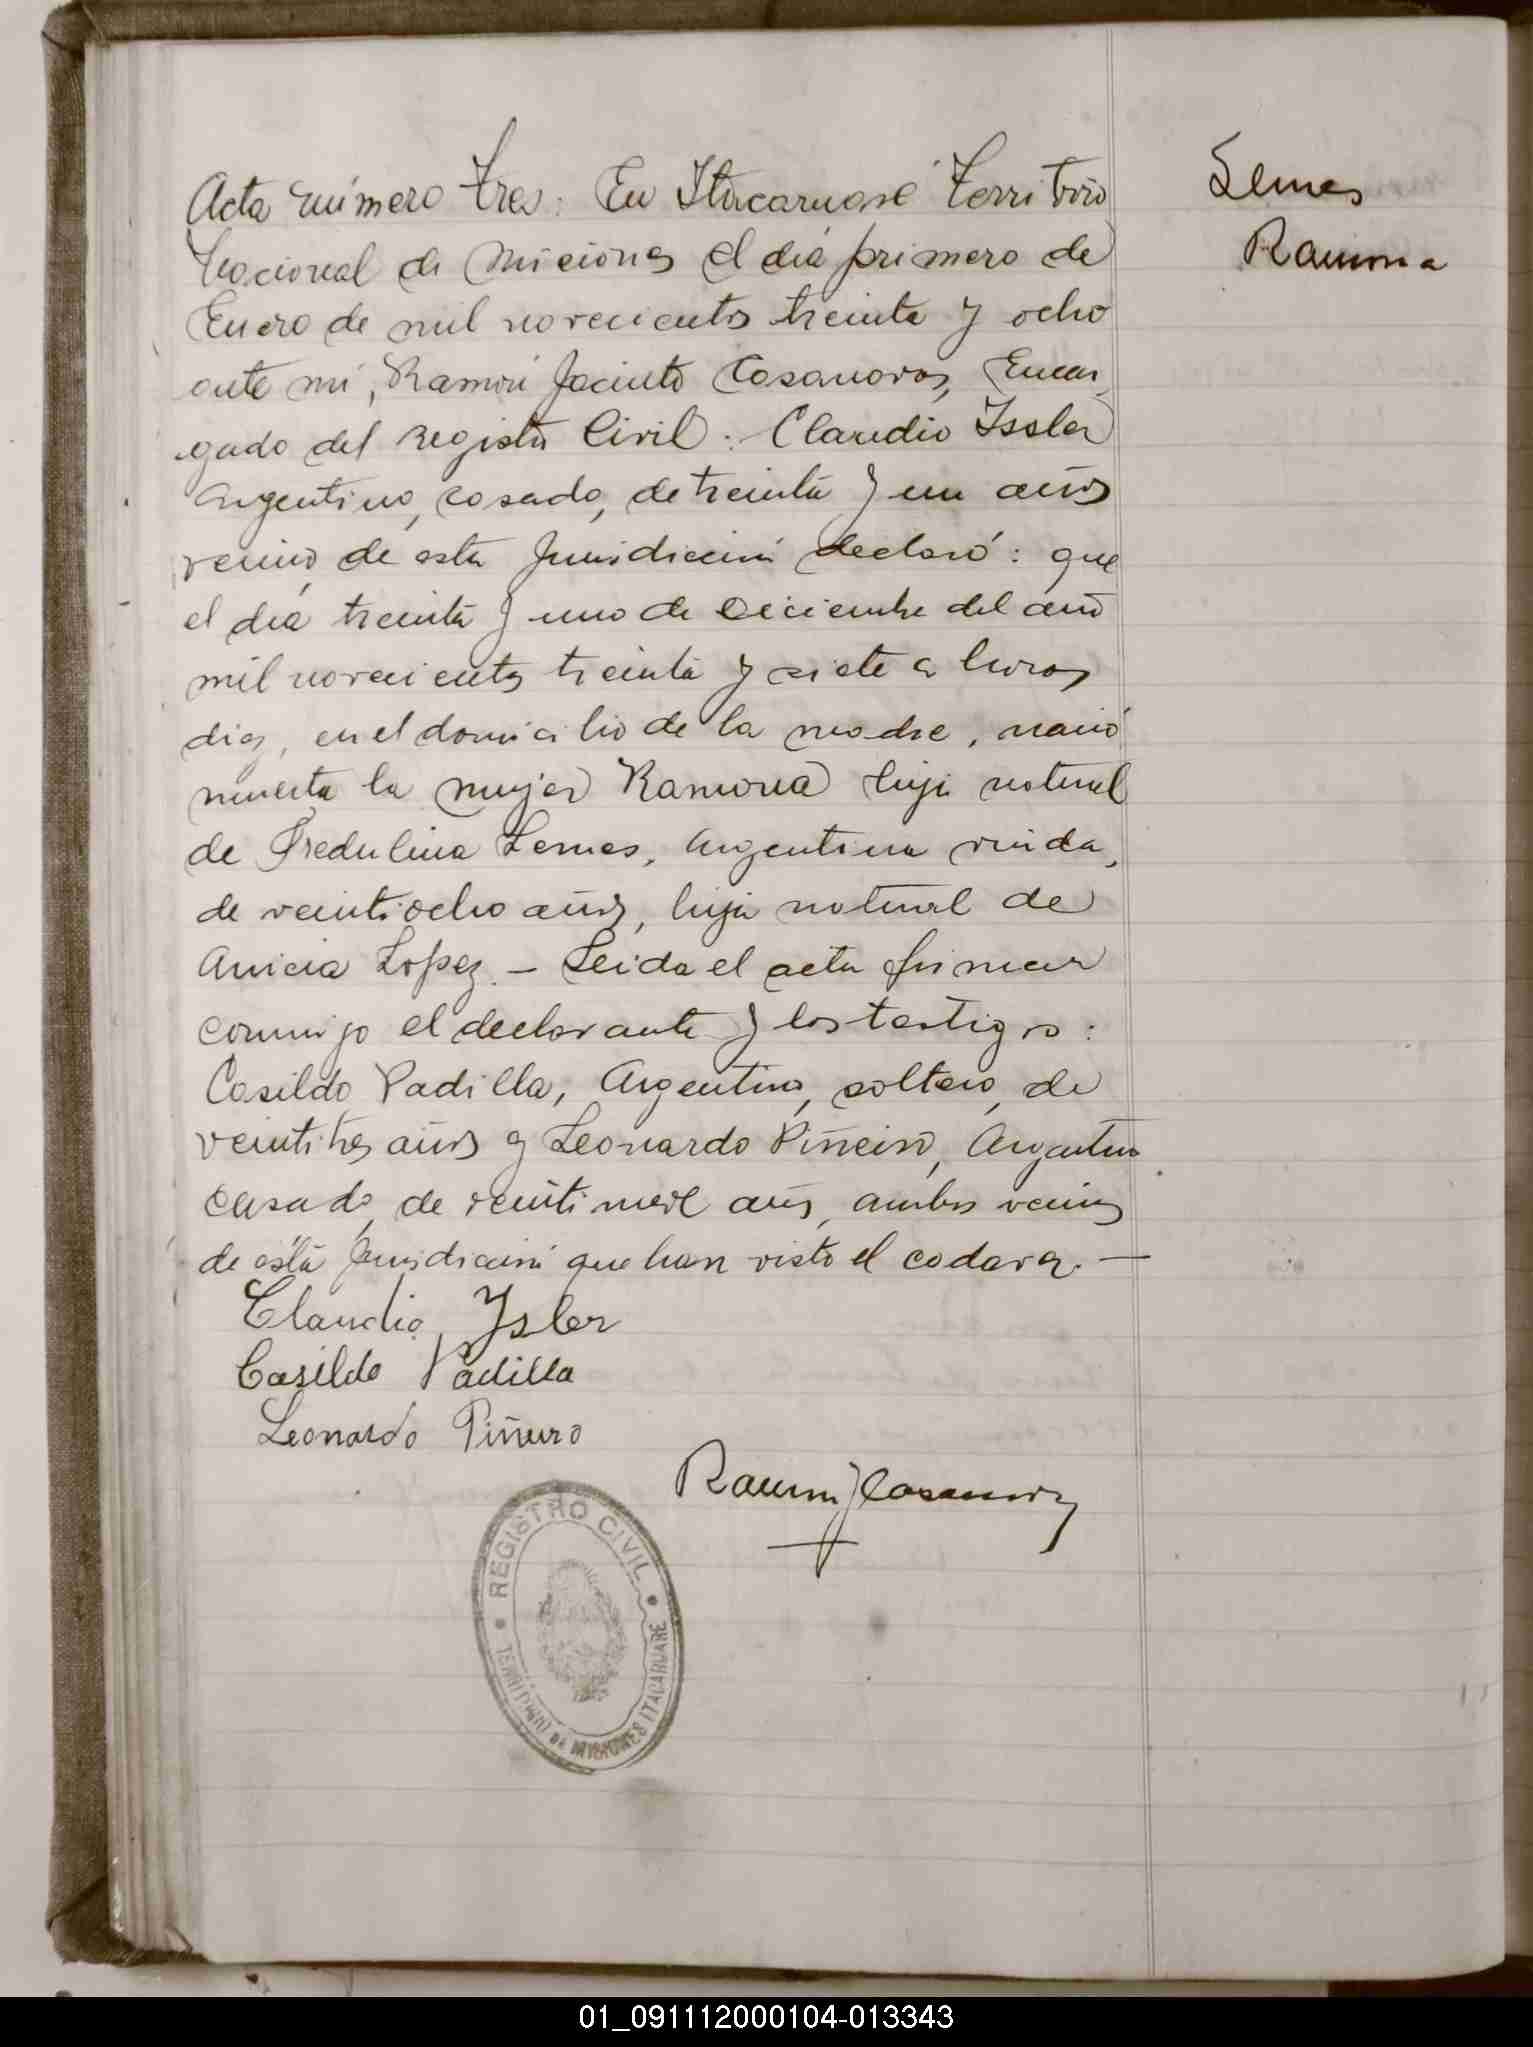 Acta número tres: En Itacaruaré Territorio
Nacional de Misiones el día primero de
Enero de mil novecientos treinta y ocho
ante mí, Ramón Jacinto Casanovas, Encar
gado del Registro Civil: Claudio Issler
Argentino, casado, de treinta y un años
vecino de esta Jurisdicción declaró: que
el día treinta y uno de Diciembre del año
mil novecientos treinta y siete a horas
diez, en el domicilio de la madre, nació
muerta la mujer Ramona hija natural
de Fredulina Lemes, Argentina viuda,
de veintiocho años, hija natural de
Anicia Lopez. — Leida el acta firman
conmigo el declarante y los testigos:
Casildo Padilla, Argentino, soltero, de
veintitres años y Leonardo Piñeiro, Argentino
casado, de veintinueve años, ambos vecinos
de ésta Jurisdicción que han visto el cadaver. —
Claudio Isler
Casildo Padilla
Leonardo Piñero
Ramón J Casanovas
Lemes
Ramona
REGISTRO CIVIL
TERRITORIO DE MISIONES ITACARUARE
01_091112000104-013343